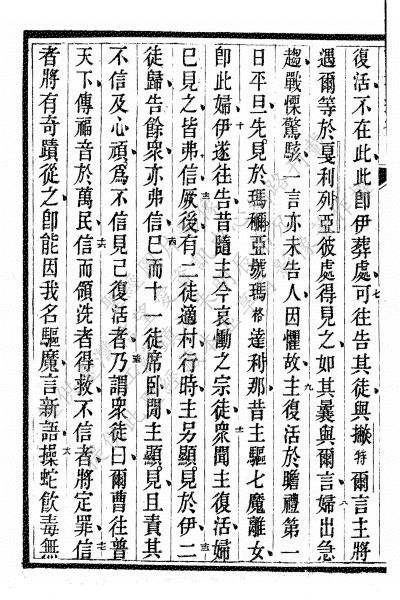 復活不在此此卽伊葬處可往告其徒與撇特爾言主將
遇爾等於戛利列亞彼處得見之如其曩與爾言婦出急
趨戰慄驚駭一言亦未告人因懼故主復活於瞻禮第一
日平旦先見於瑪穪亞號瑪格達利那昔主驅七魔離女
卽此婦伊遂往告昔隨主今哀慟之宗徒衆聞主復活婦
已見之皆弗信厥後有二徒適村行時主另顯見於伊二
徒歸告餘衆亦弗信已而十一徒席卧閒主顯見且責其
不信及心頑爲不信見己復活者乃謂衆徒曰爾曹往普
天下傳福音於萬民信而領洗者得救不信者將定罪信
者將有奇蹟從之卽能因我名驅魔言新語操蛇飲毒無